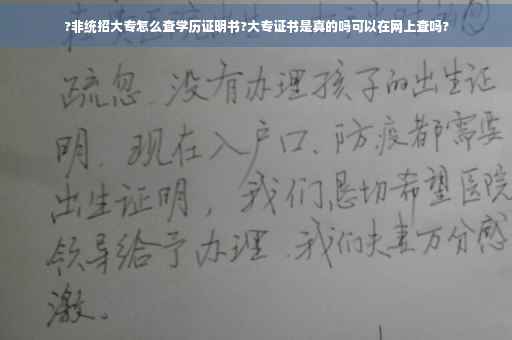 ?非统招大专怎么查学历证明书?大专证书是真的吗可以在网上查吗?
疏忽、没有办理孩子的出生证
明、现在入户口、防疫都需要
出生证明，我们恳切希望医院
领导给予办理、我们夫妻万分感
激。